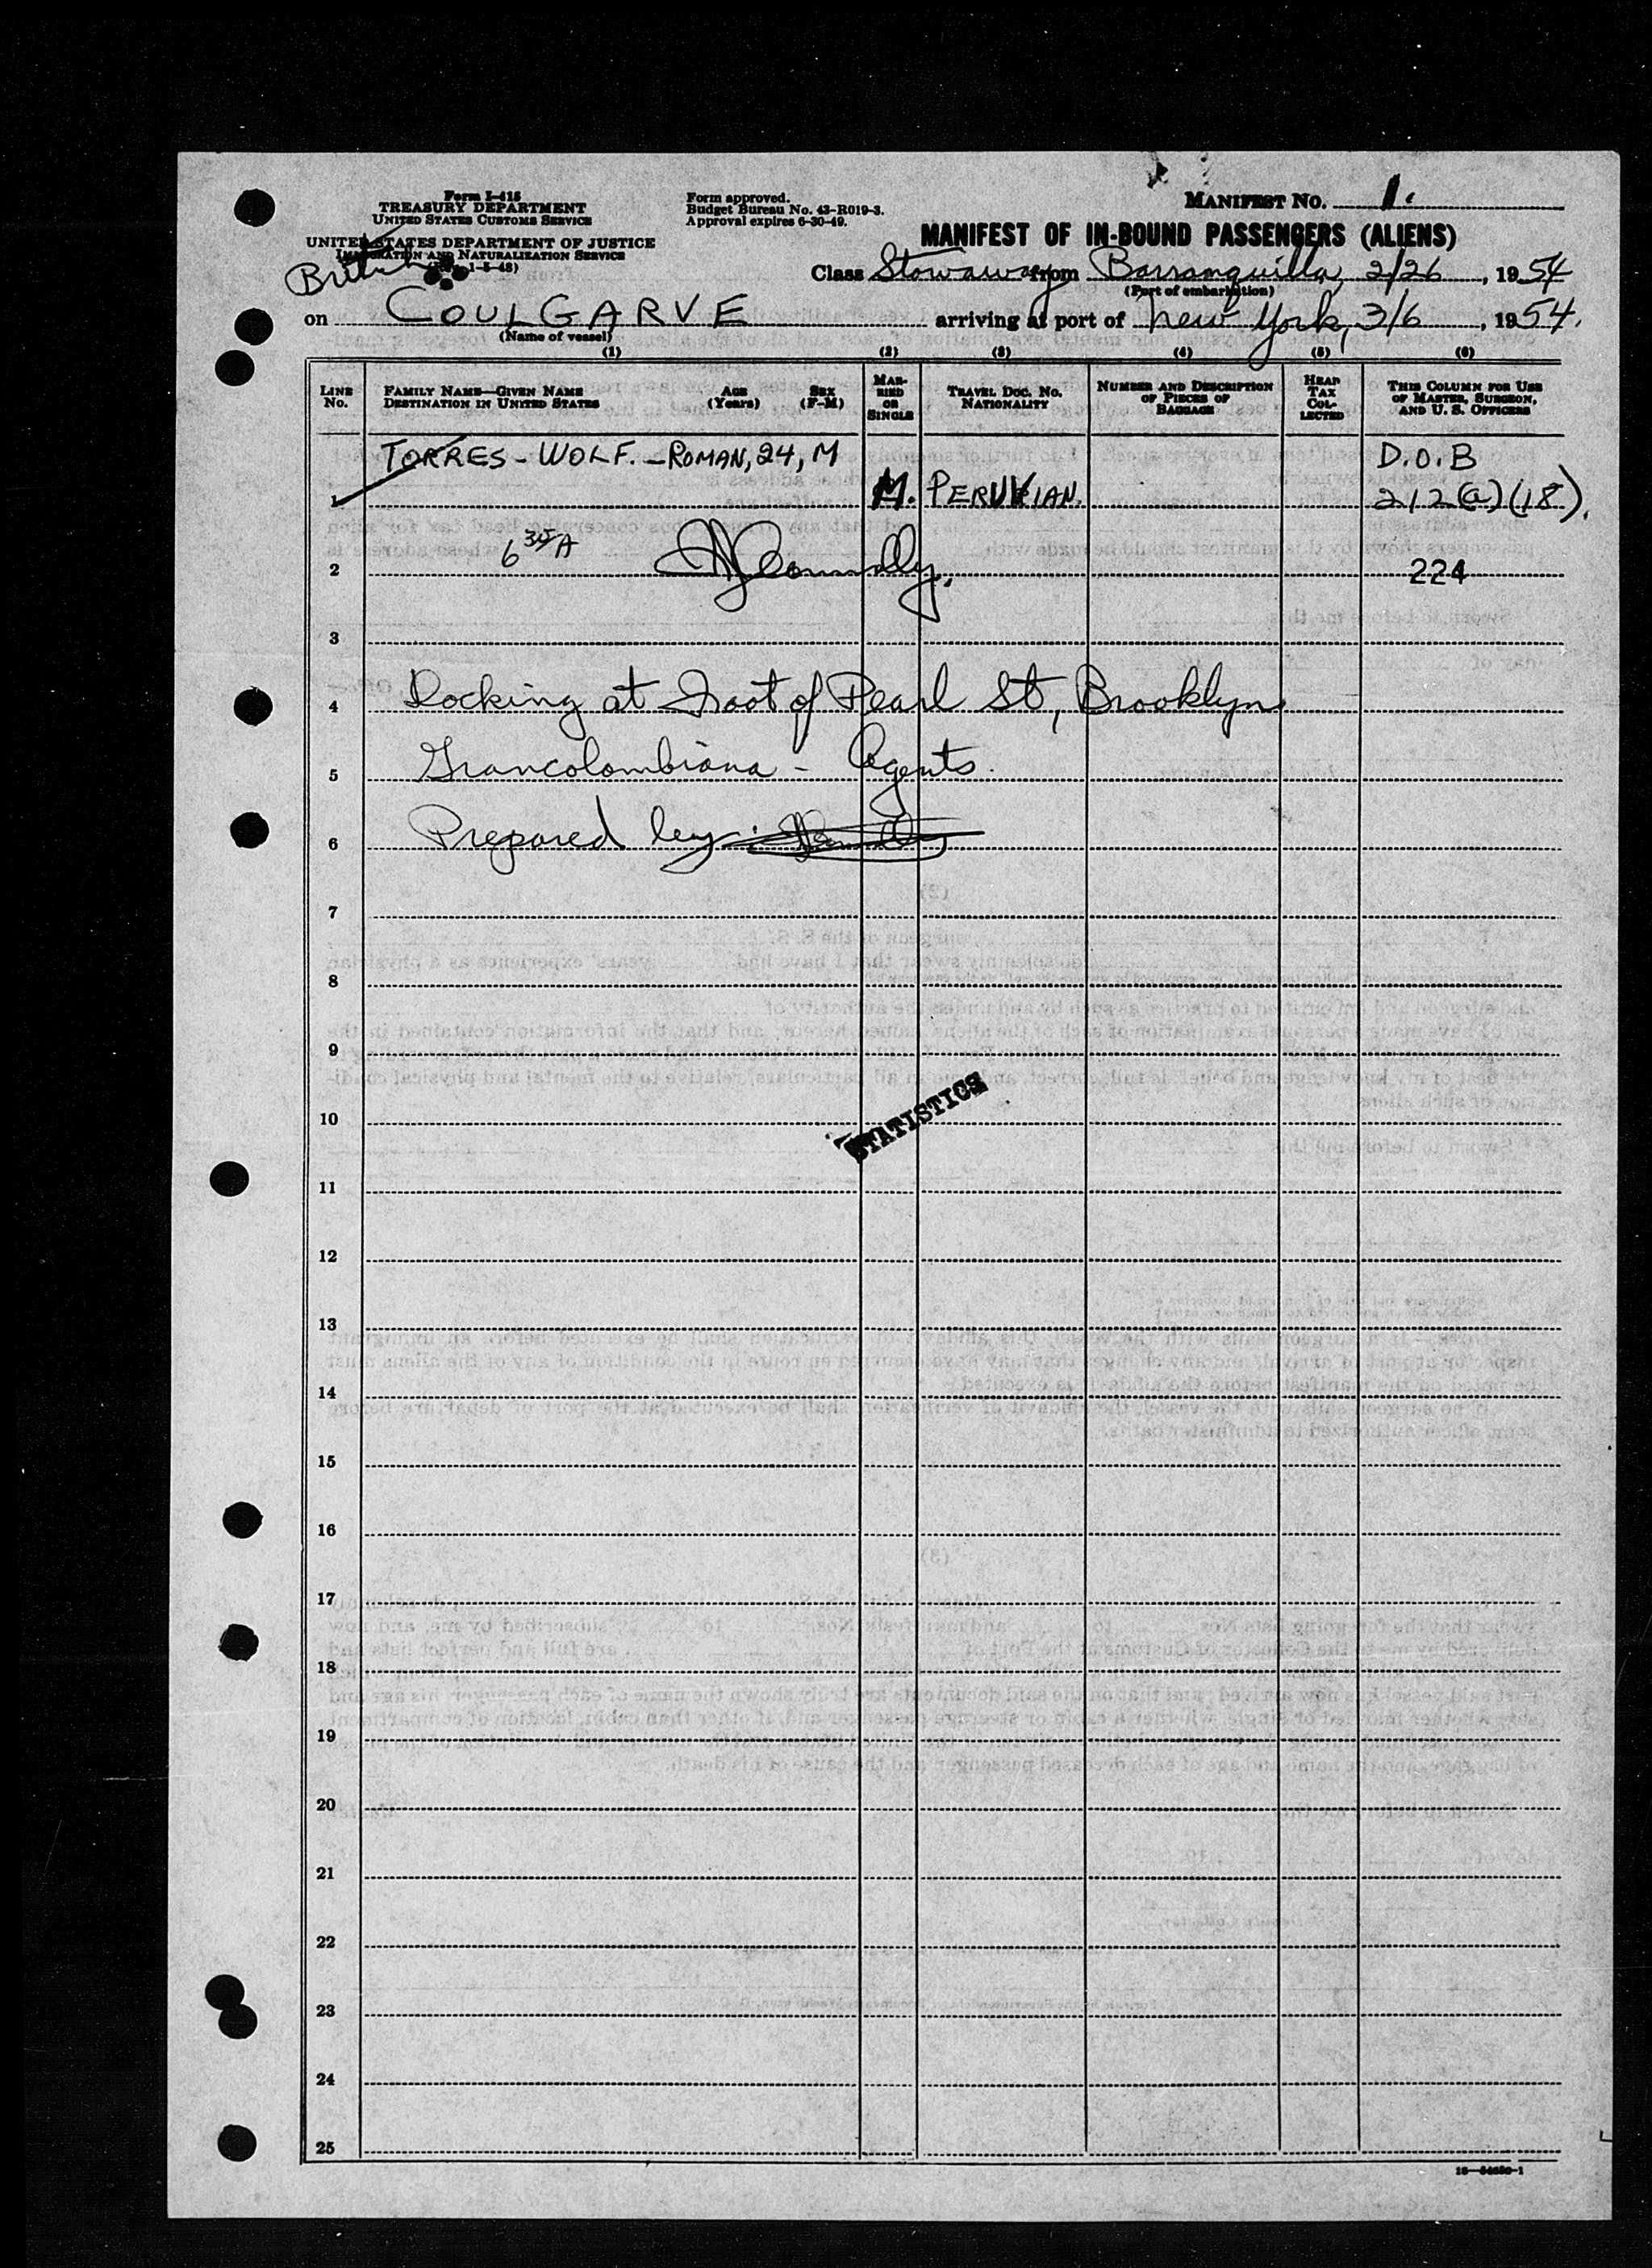 Form I-415
TREASURY DEPARTMENT
UNITED STATES CUSTOMS SERVICE
UNITED STATES DEPARTMENT OF JUSTICE
IMMIGRATION AND NATURALIZATION SERVICE
1-5-48)
British
Form approved.
Budget Bureau No. 43-R019-3.
Approval expires 6-30-49.
MANIFEST NO. 1.
MANIFEST OF IN-BOUND PASSENGERS (ALIENS)
Class Stowaway from Barranquilla, 2/26, 1954
(Port of embarkation)
on COULGARVE arriving at port of New York, 3/6, 1954.
(Name of vessel)
(1) (2) (3) (4) (5) (6)
LINE No.
FAMILY NAME—GIVEN NAME
DESTINATION IN UNITED STATES
AGE (Years)
SEX (F-M)
MARRIED OR SINGLE
TRAVEL DOC. NO.
NATIONALITY
NUMBER AND DESCRIPTION OF PIECES OF BAGGAGE
HEAD TAX COLLECTED
THIS COLUMN FOR USE OF MASTER, SURGEON, AND U. S. OFFICERS
TORRES - WOLF. - ROMAN, 24, M D.O.B
1 M. PERUVIAN. 212(a)(18).
6 35 A
2 224
3
4 Docking at Foot of Pearl St, Brooklyn
5 Grancolombiana - Agents.
6 Prepared by:
7
8
9
STATISTICS
10
11
12
13
14
15
16
17
18
19
20
21
22
23
24
25